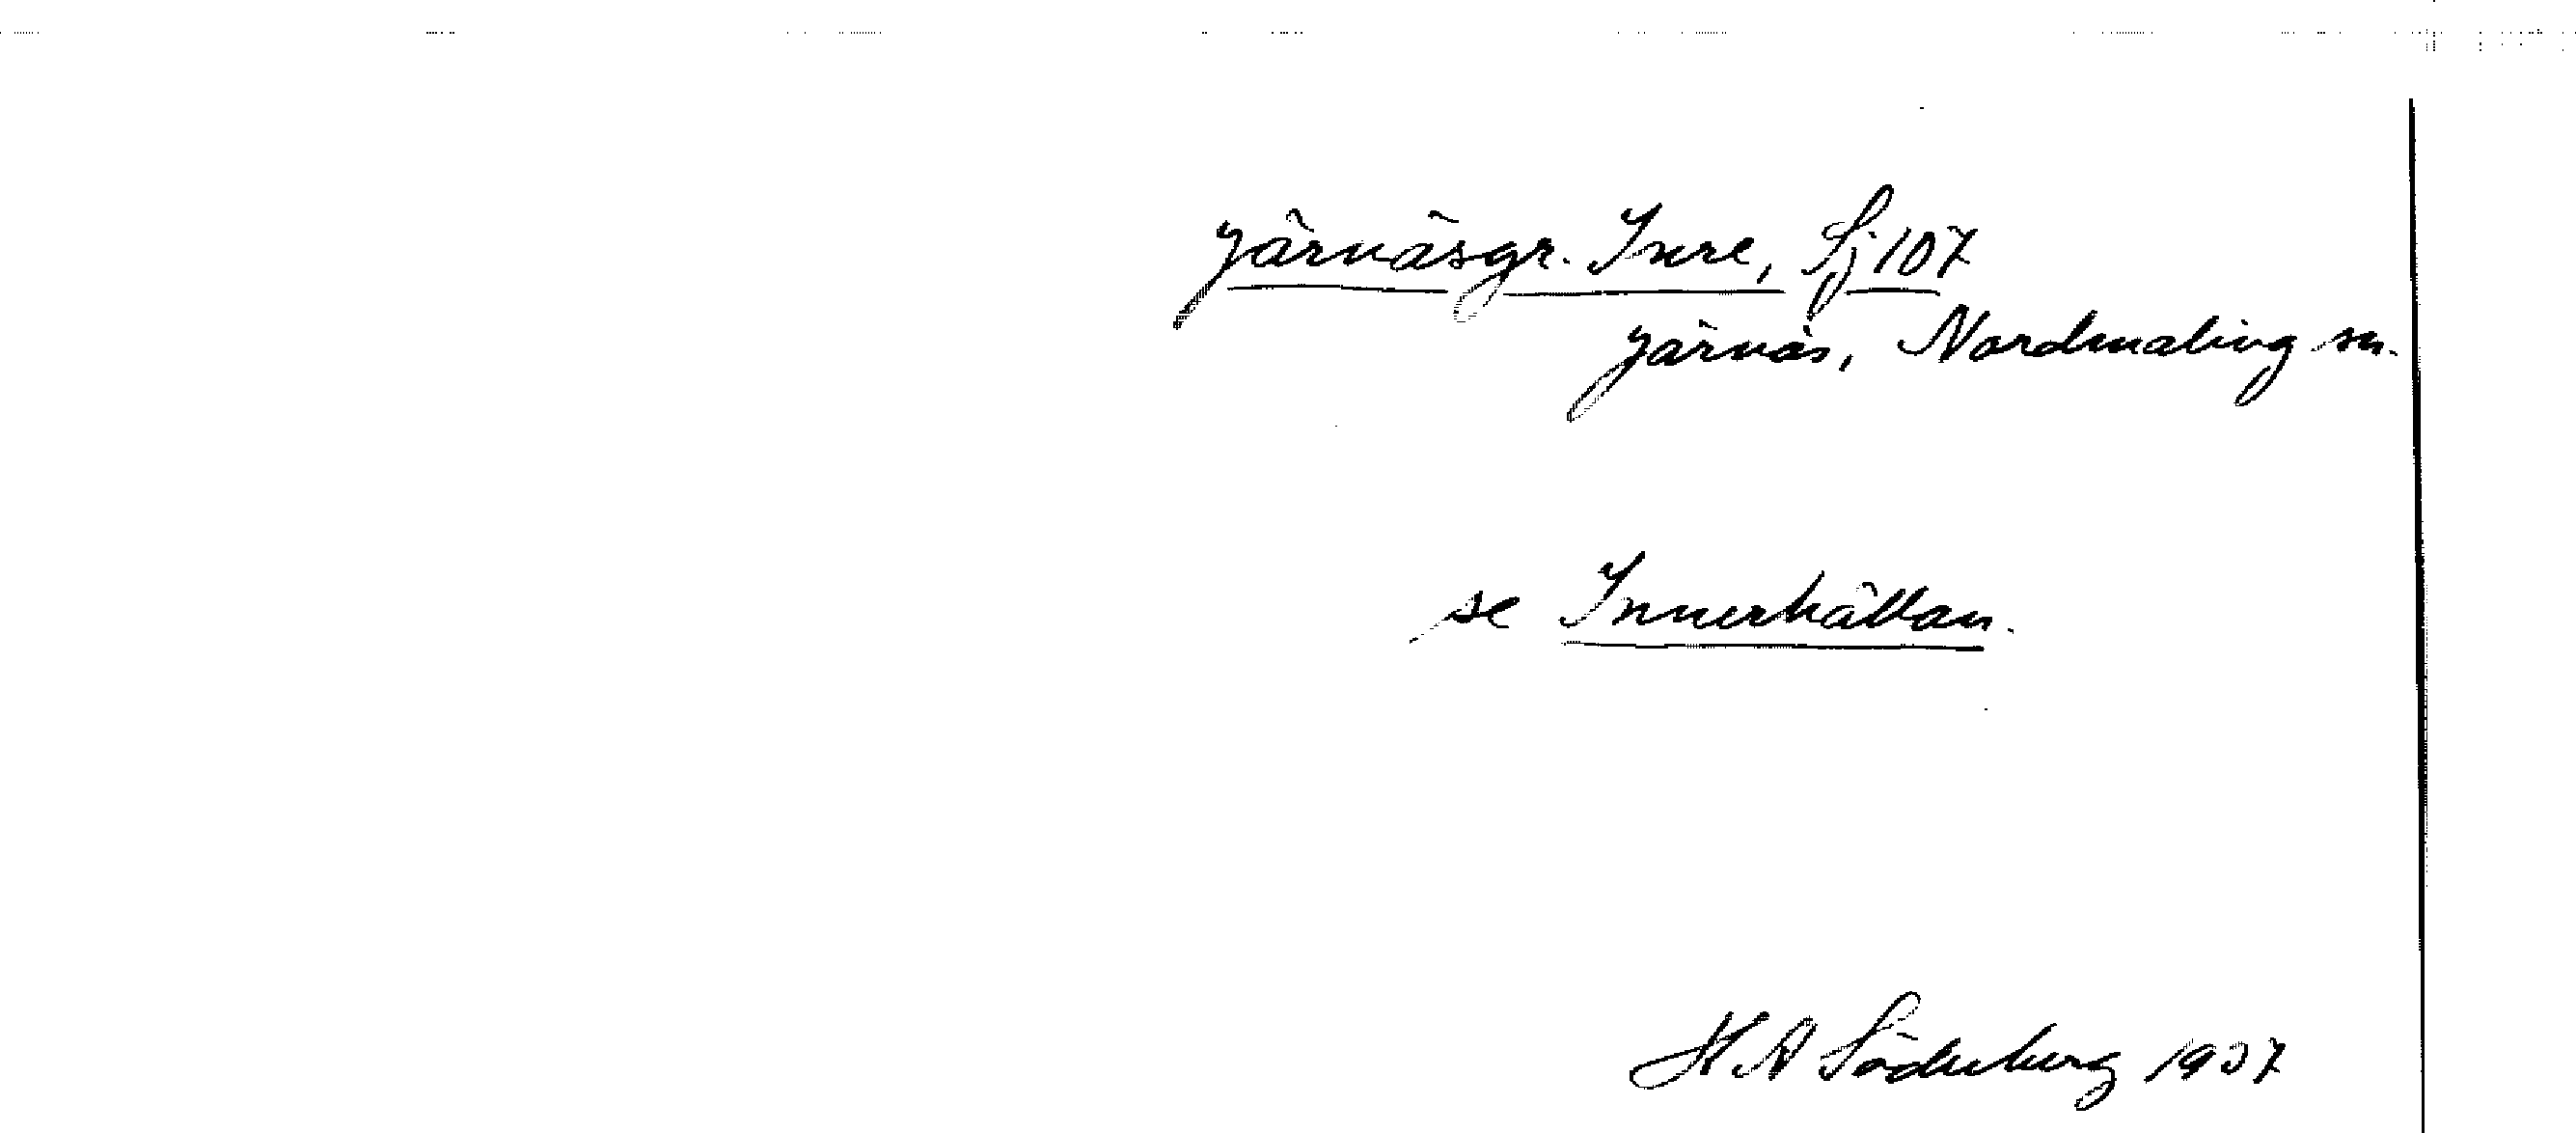 Järnäsgr. Inre, Sj 107
Järnäs, Nordmaling sn.
se Innerhällan.
H A Söderberg 1937